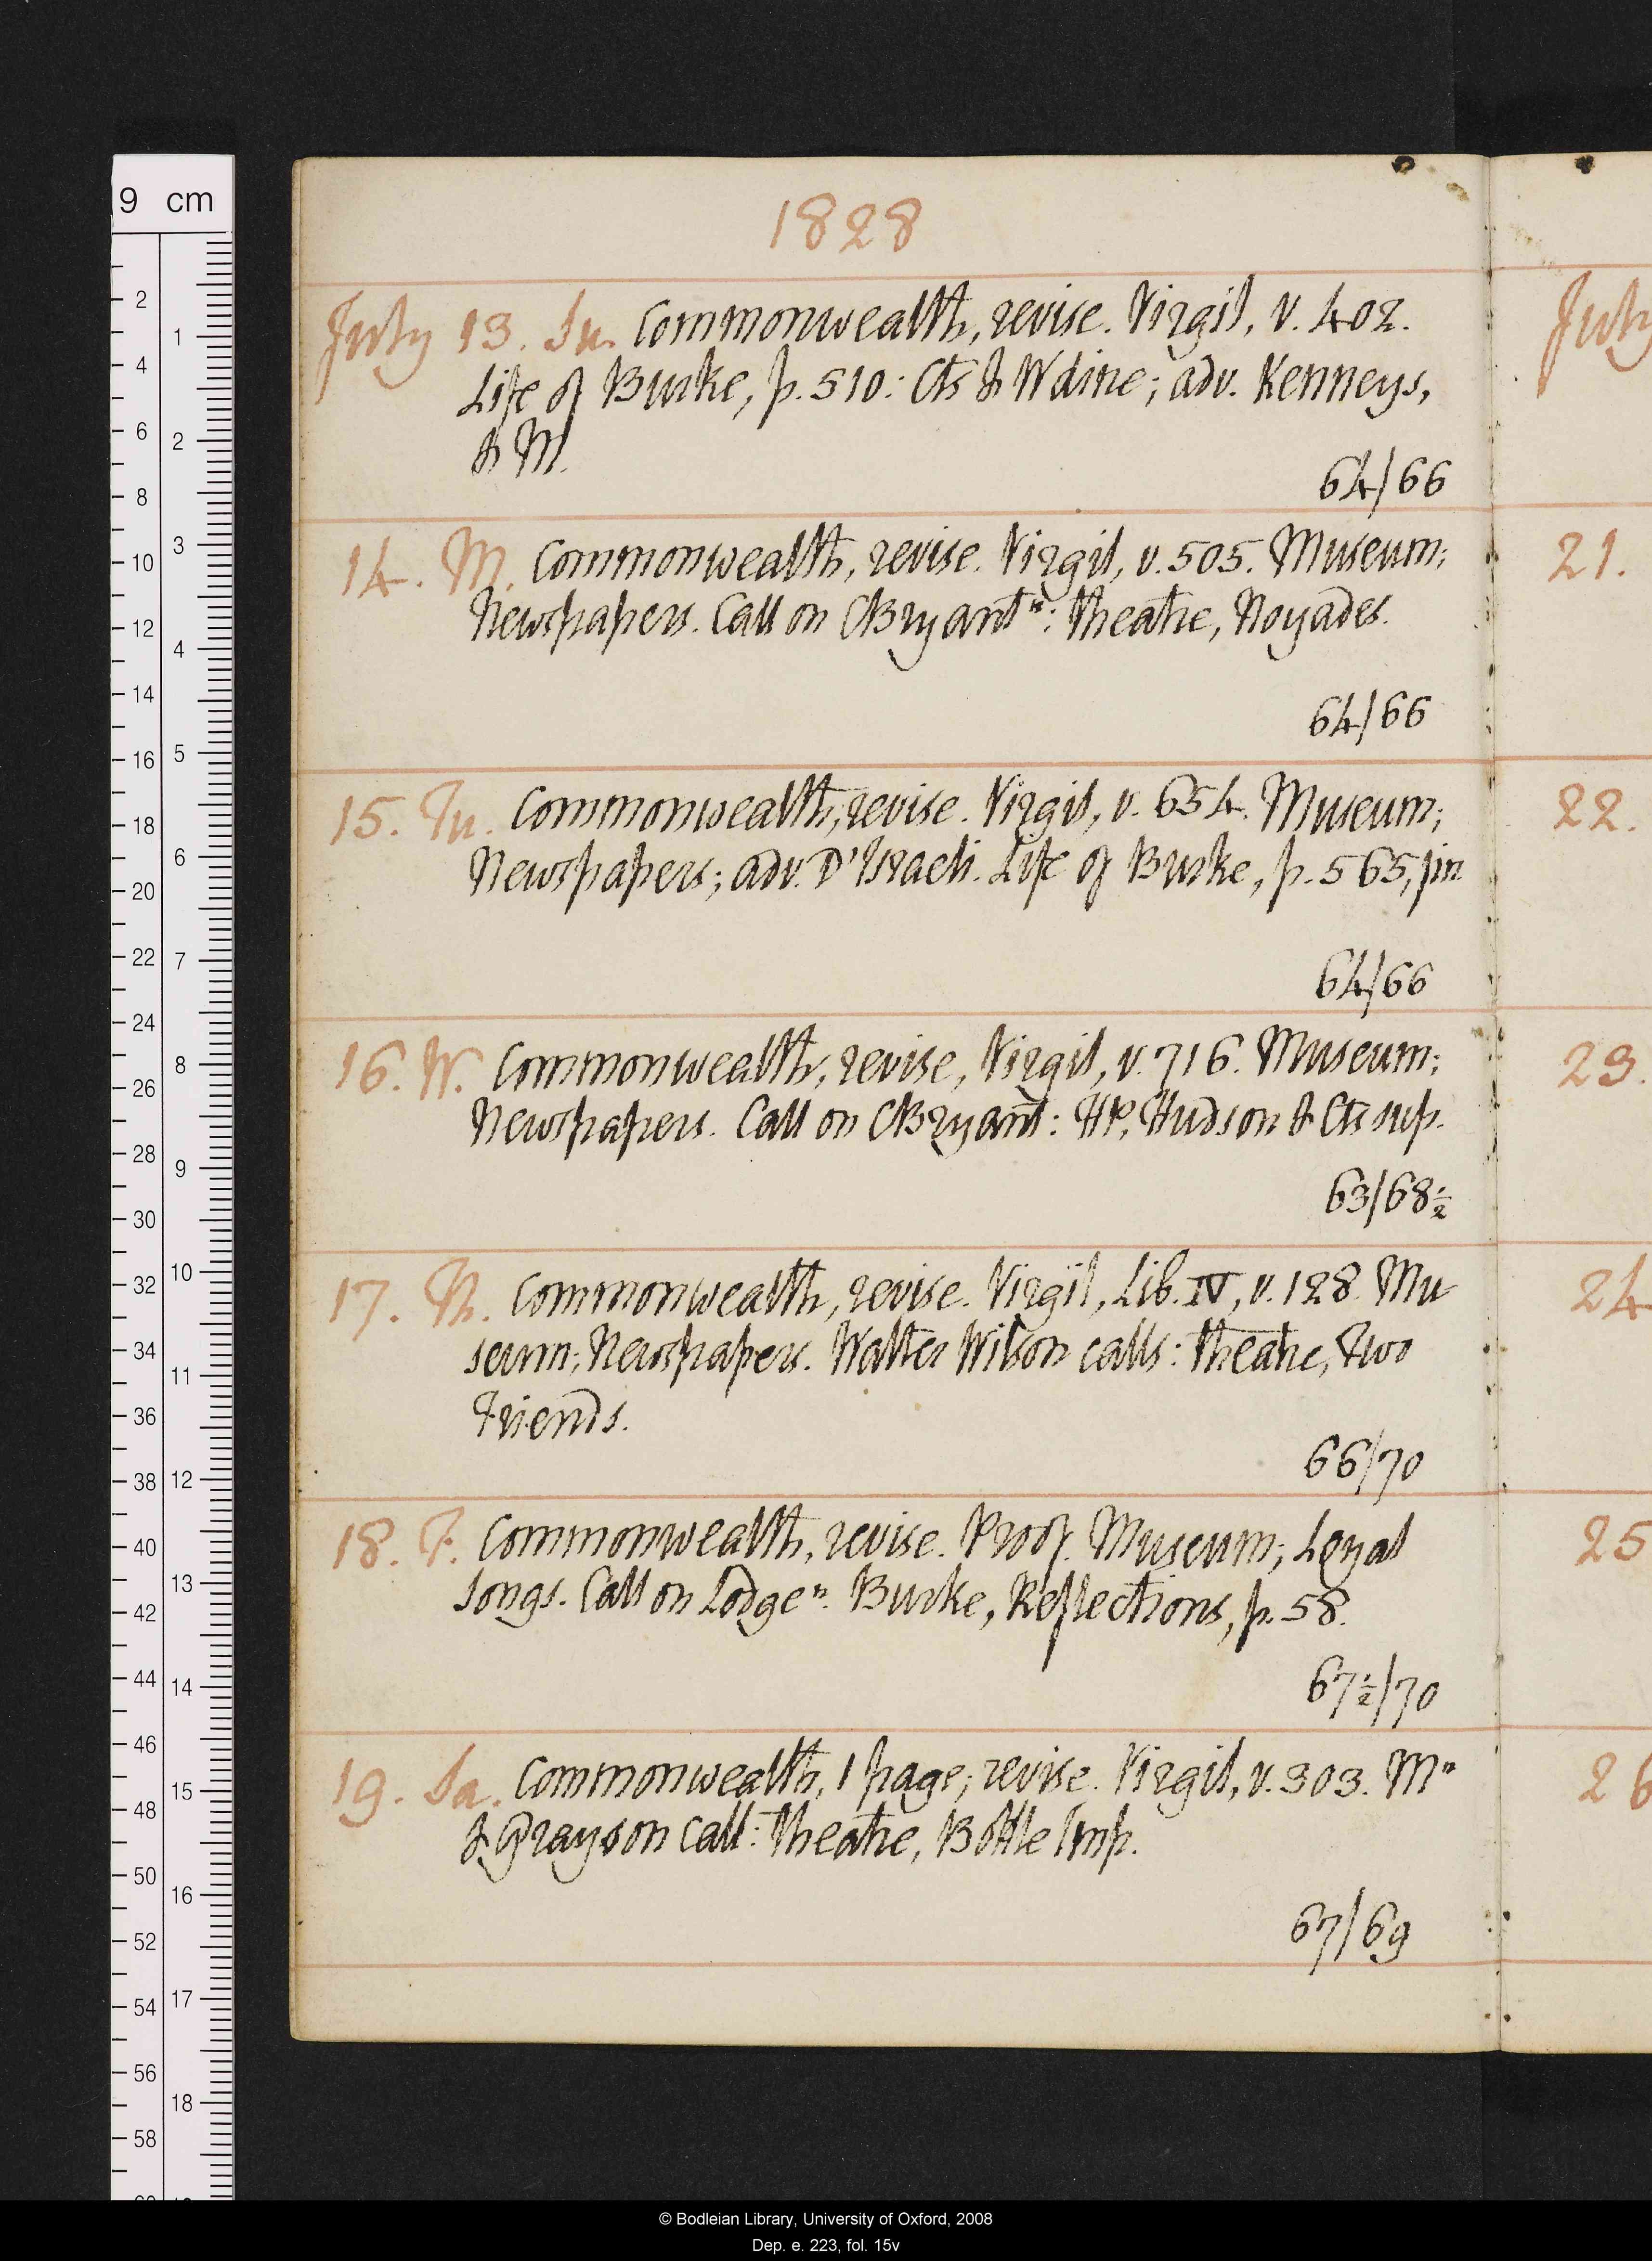 9 cm
1828
July 13. Su. Commonwealth, revise. Virgil, v. 402.
Life of Burke, p. 510: Cts & W dine; adv. Kenneys,
& M.
64/66
14. M. Commonwealth, revise. Virgil, v. 505. Museum;
Newspapers. Call on CBryant n: theatre, Noyades.
64/66
15. Tu. Commonwealth, revise. Virgil, v. 654. Museum;
Newspapers; adv. D'Israeli. Life of Burke, p. 565, fin.
64/66
16. W. Commonwealth, revise, Virgil, v. 716. Museum;
Newspapers. Call on CBryant: HP, Hudson & Cts sup.
63/68½
17. Th. Commonwealth, revise. Virgil, Lib. IV, v. 128. Mu
seum; Newspapers. Walter Wilson calls: theatre, Two
Friends.
66/70
18. F. Commonwealth, revise. Proof. Museum; Loyal
Songs. Call on Lodge n. Burke, Reflections, p. 58.
67½/70
19. Sa. Commonwealth, 1 page; revise. Virgil, v. 303. M rs
& Grayson call: Theatre, Bottle Imp.
67/69
July
21.
22.
23.
24
25
26
© Bodleian Library, University of Oxford, 2008
Dep. e. 223, fol. 15v